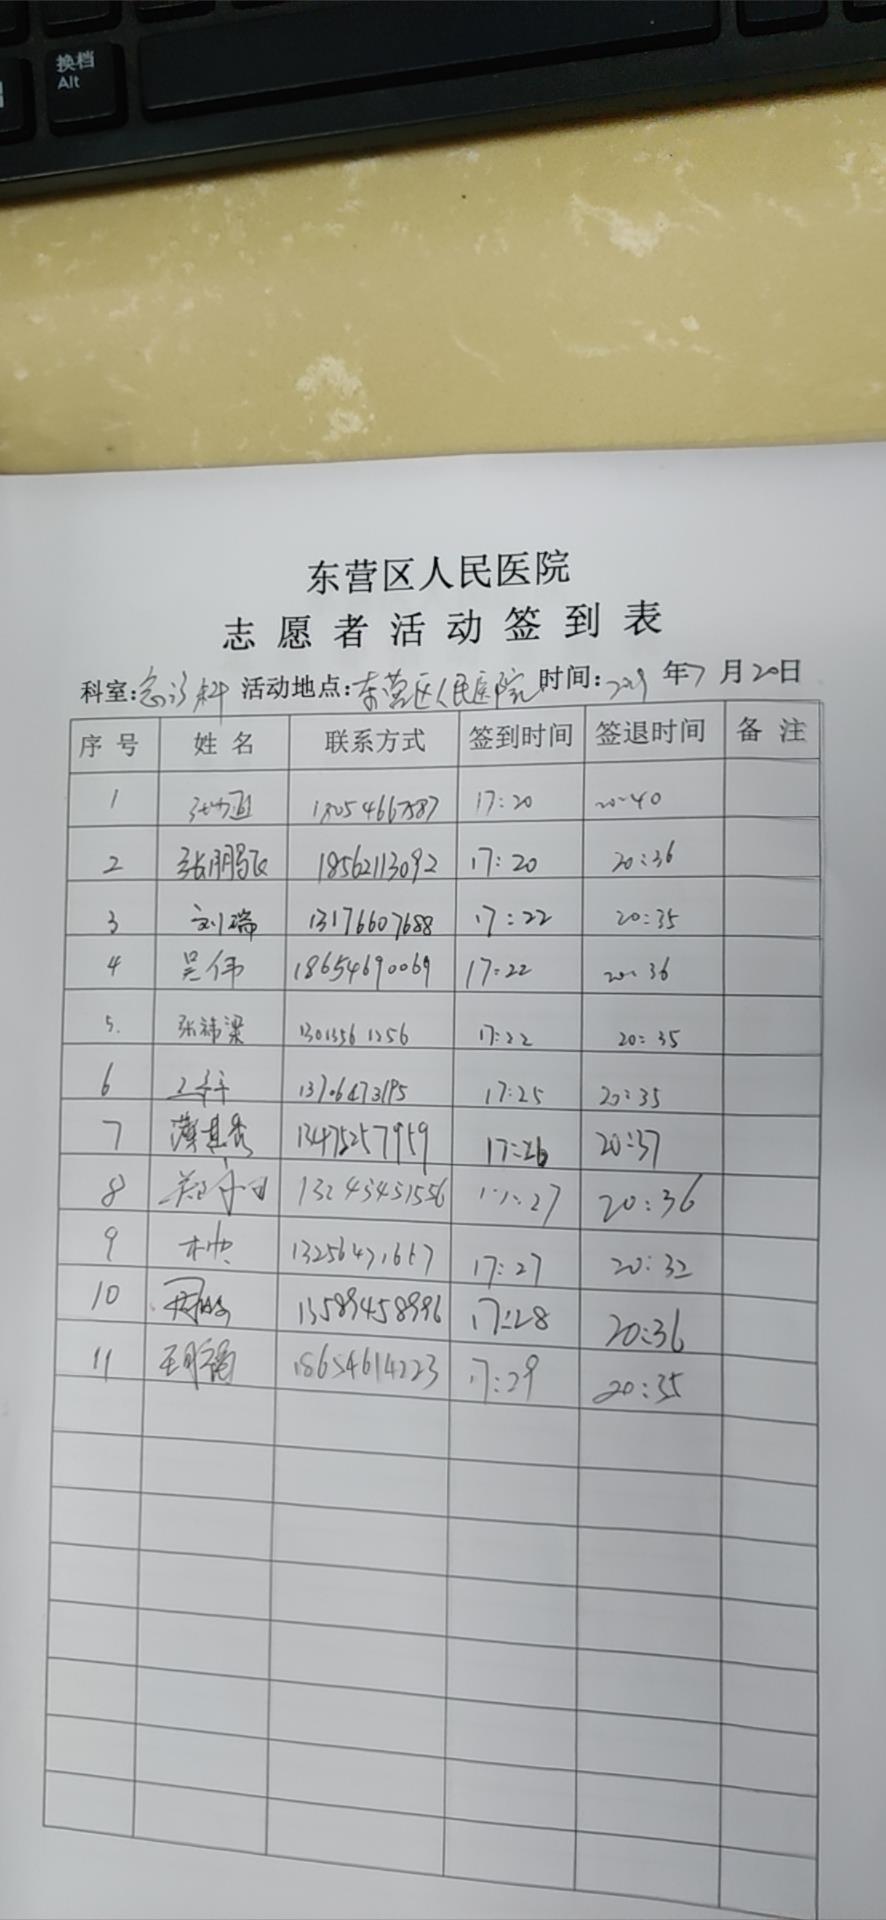 换档
Alt
东营区人民医院
志愿者活动签到表
科室:急诊科 活动地点:东营区人民医院 时间: 年7月20日
序号 姓名 联系方式 签到时间 签退时间 备注
1 17:20 20:40
2 张鹏飞 18562113092 17:20 20:36
3 刘瑞 13176607688 17:22 20:35
4 吴伟 18654690069 17:22 20:36
5. 张祎梁 13013561256 17:22 20:35
6 13706473195 17:25 20:35
7 13475257959 17:26 20:37
8 13245451556 17:27 20:36
9 17:27 20:32
10 13589458996 17:28 20:36
11 18654614223 17:29 20:35